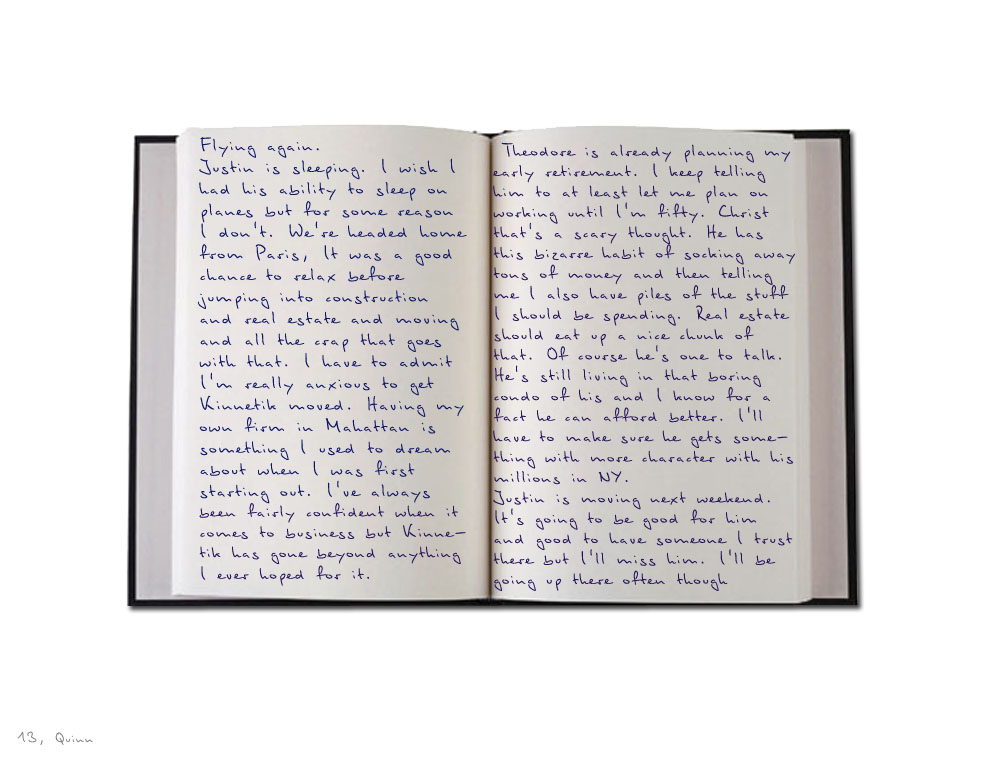 Flying again.
Justin is sleeping. I wish I
had his ability to sleep on
planes but for some reason
I don't. We're headed home
from Paris, It was a good
chance to relax before
jumping into construction
and real estate and moving
and all the crap that goes
with that. I have to admit
I'm really anxious to get
Kinnetik moved. Having my
own firm in Mahattan is
something I used to dream
about when I was first
starting out. I've always
been fairly confident when it
comes to business but Kinne-
tik has gone beyond anything
I ever hoped for it.
Theodore is already planning my
early retirement. I keep telling
him to at least let me plan on
working until I'm fifty. Christ
that's a scary thought. He has
this bizarre habit of socking away
tons of money and then telling
me I also have piles of the stuff
I should be spending. Real estate
should eat up a nice chunk of
that. Of course he's one to talk.
He's still living in that boring
condo of his and I know for a
fact he can afford better. I'll
have to make sure he gets some-
thing with more character with his
millions in NY.
Justin is moving next weekend.
It's going to be good for him
and good to have someone I trust
there but I'll miss him. I'll be
going up there often though
13, Quinn